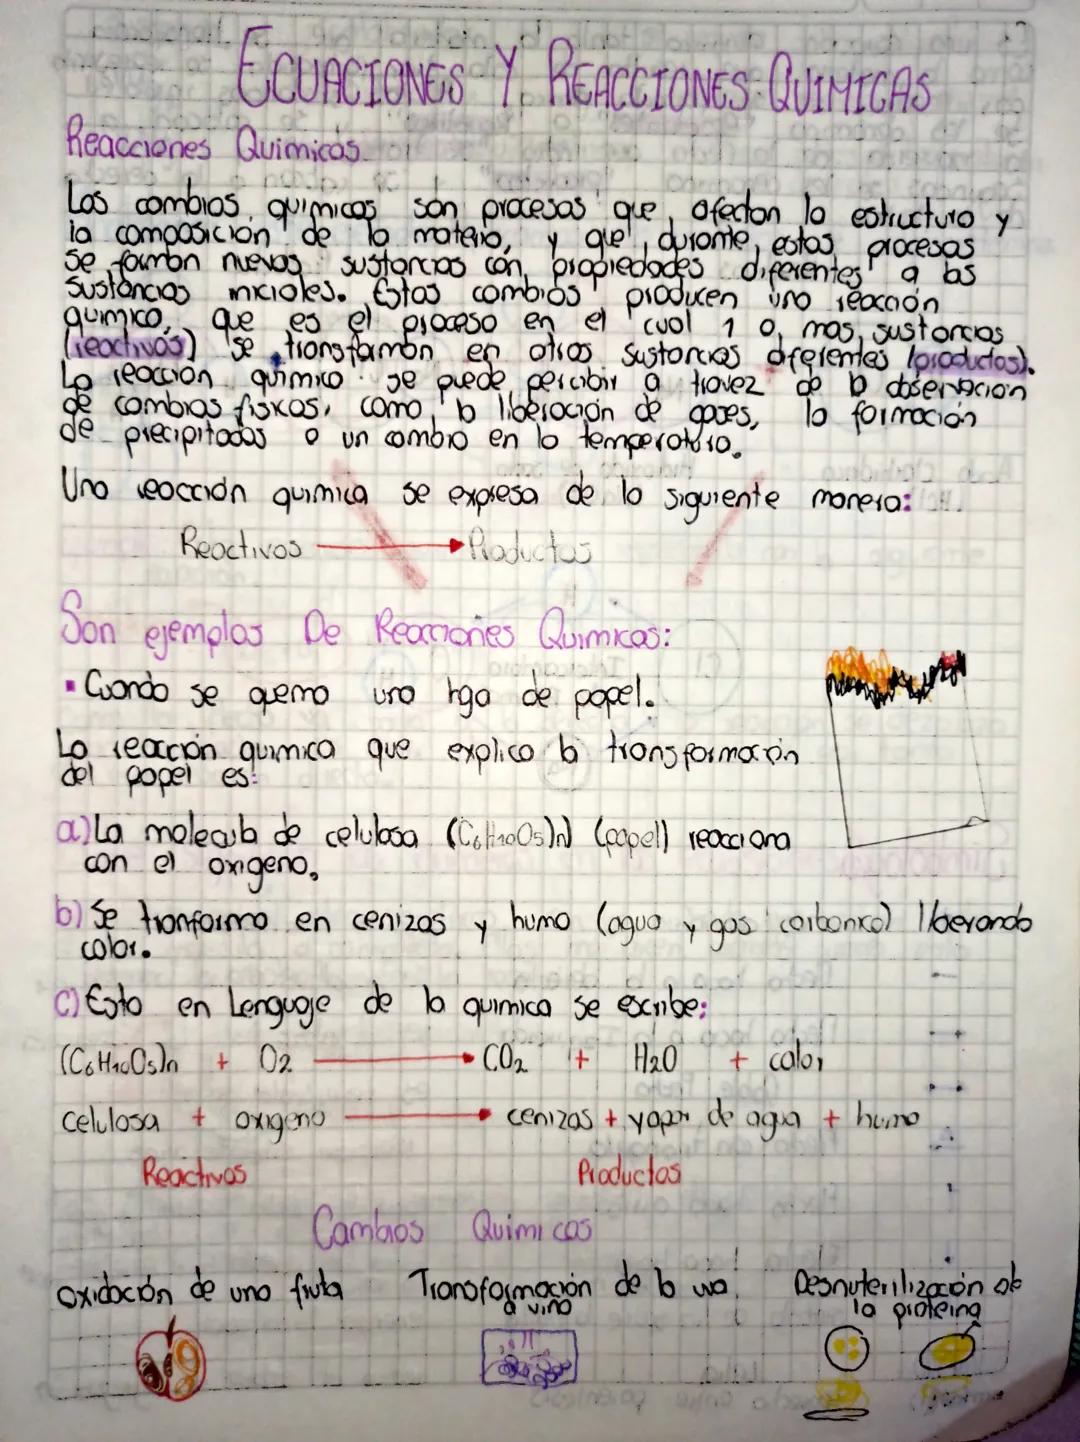 ECUACIONES Y REACCIONES QUIMICAS
Reacciones Quimicas
Los cambios quimicos son procesos que afectan la estructura y
la composición de la materia, y que durante estos procesos
se forman nuevas sustancias con propiedades diferentes a las
sustancias iniciales. Estos cambios producen una reacción
quimica, que es el proceso en el cual 1 o mas sustancias
(reactivos) se transforman en otras sustancias diferentes (productos).
La reacción quimica se puede percibir a travez de la observacion
de cambios fisicos, como la liberación de gases, la formación
de precipitados o un cambio en la temperatura.
Una reacción quimica se expresa de la siguiente manera:
Reactivos → Productos
Son ejemplos De Reacciones Quimicas:
▪ Cuando se quema una hoja de papel.
La reacción quimica que explica la transformación
del papel es:
a) La molecula de celulosa (C6H10O5)n) (papel) reacciona
con el oxigeno,
b) Se tranforma en cenizas y humo (agua y gas carbonico) liberando
calor.
c) Esto en Lenguaje de la quimica se escribe:
(C6H10O5)n + O2 → CO2 + H2O + calor
celulosa + oxigeno → cenizas + vapor de agua + humo
Reactivos Productos
Cambios Quimicos
oxidación de una fruta Transformación de la uva Desnuterilización de
a vino la proteina